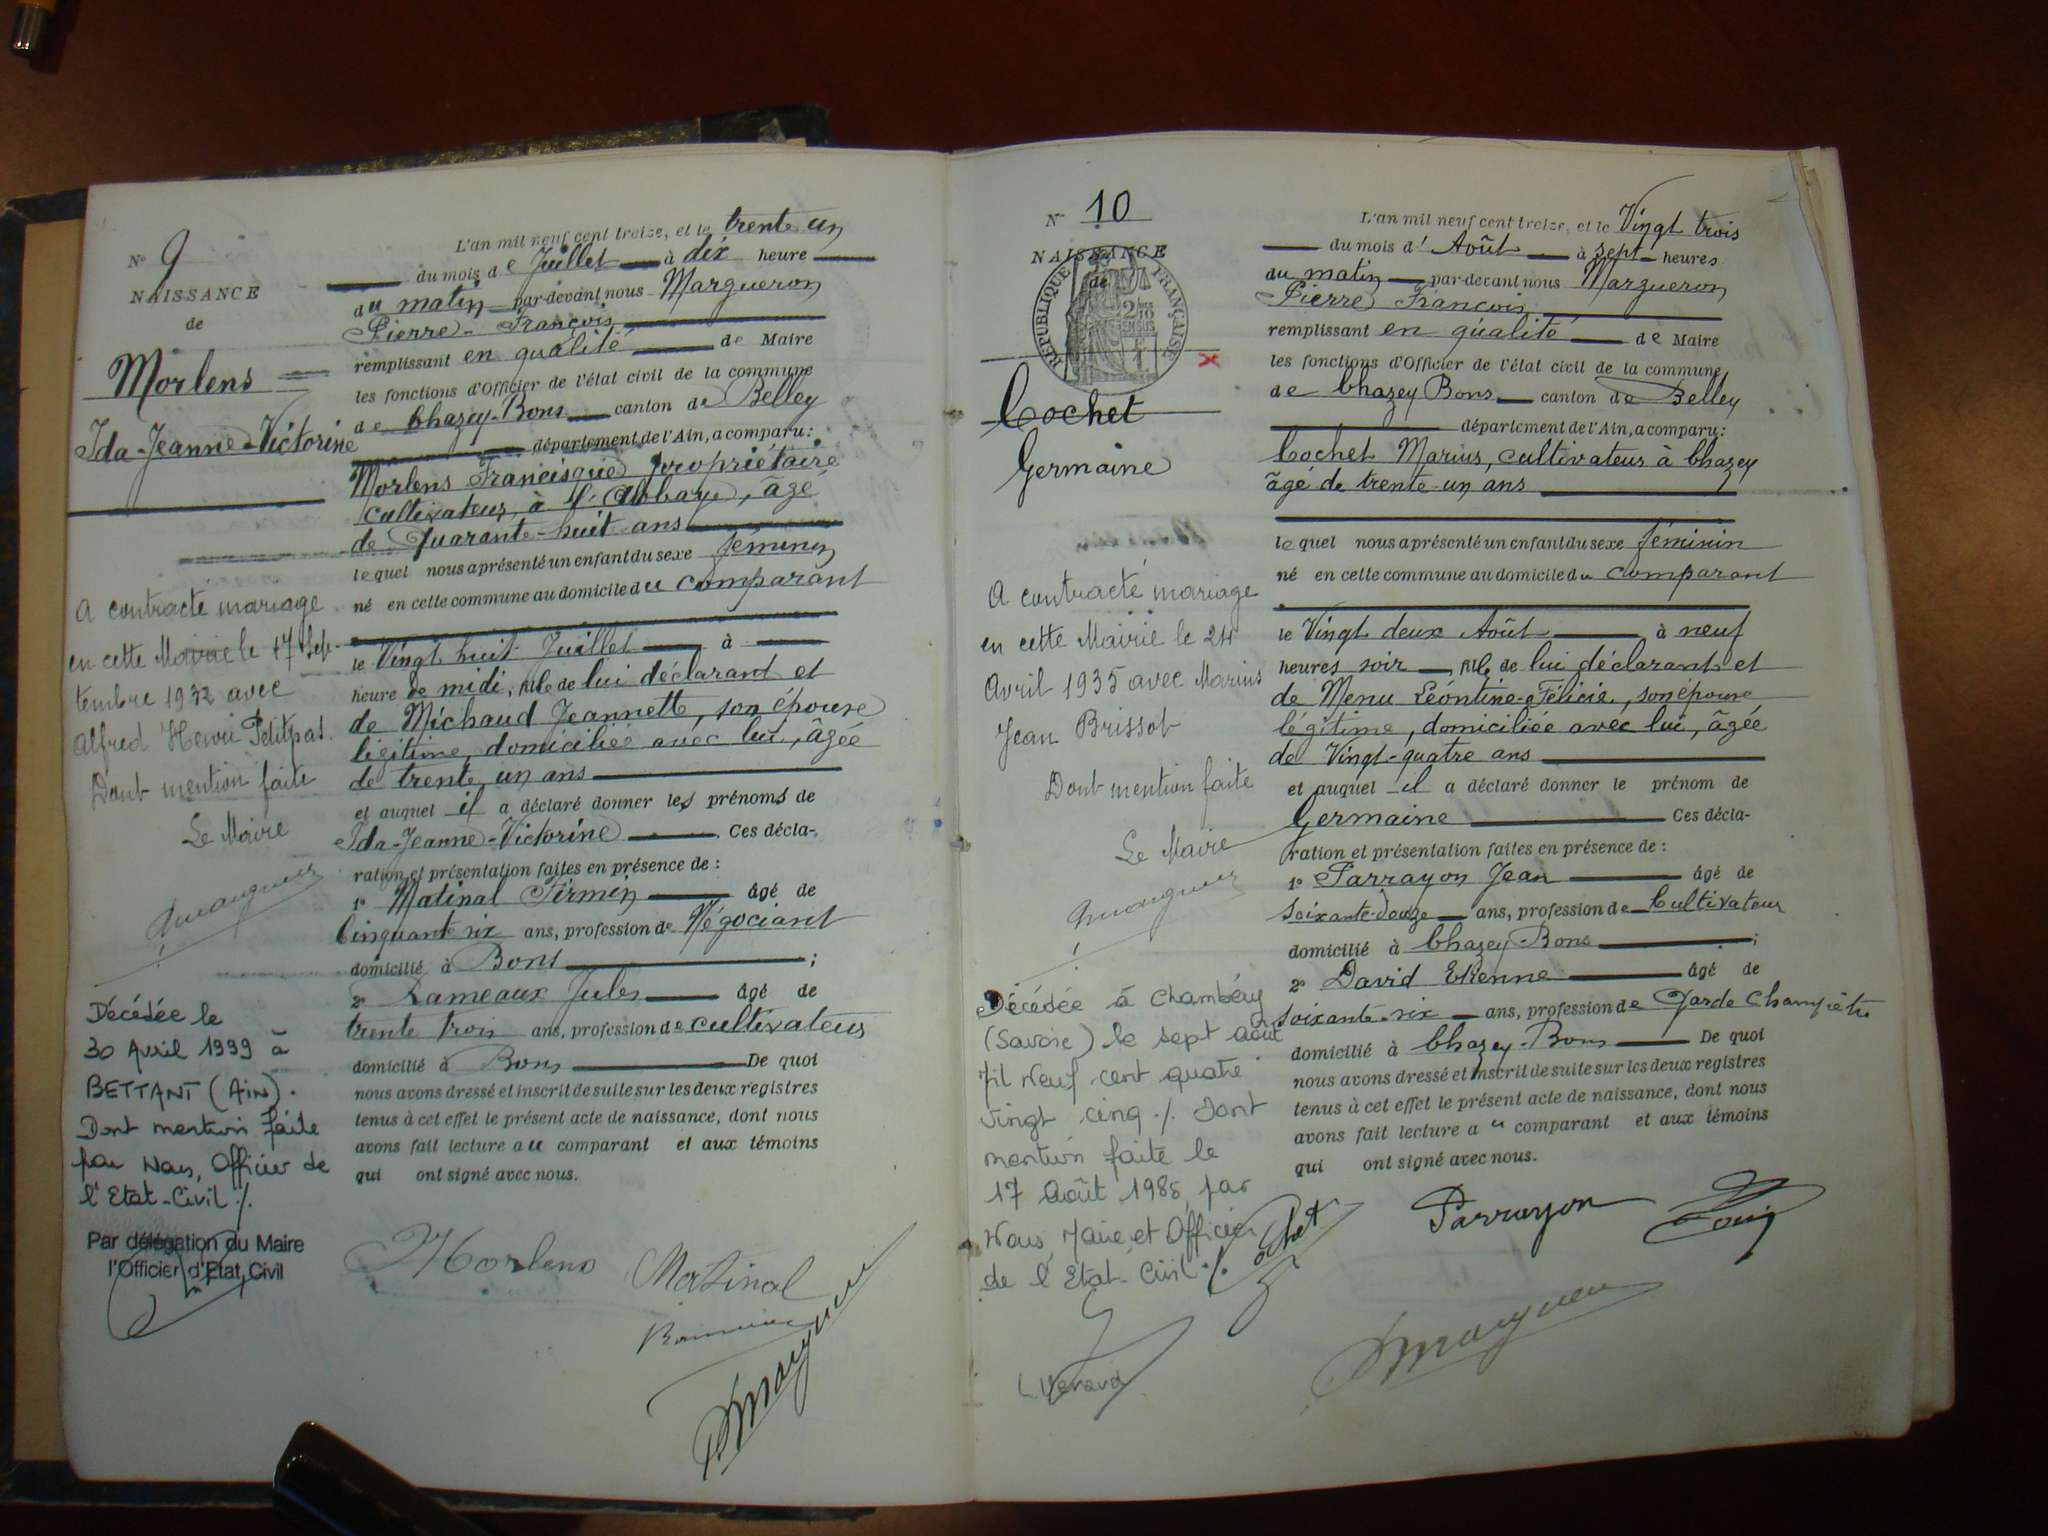 N° 9
NAISSANCE
de
Morlens
Ida-Jeanne-Victorine
A contracté mariage
en cette Mairie le 17 Sep-
tembre 1932 avec
Alfred Henri Petitpas.
Dont mention faite
Le Maire
Décédée le
30 Avril 1999 à
BETTANT (Ain).
Dont mention faite
par Nous, Officier de
l'Etat-Civil ./.
Par délégation du Maire
l'Officier d'Etat Civil
L'an mil neuf cent treize, et le trente un
du mois de Juillet à dix heure
du matin par-devant nous Margueron
Pierre-François
remplissant en qualité de Maire
les fonctions d'Officier de l'état civil de la commune
de Chazey-Bons canton de Belley
département de l'Ain, a comparu:
Morlens Francisque propriétaire
cultivateur, à l'Abbaye, âgé
de Quarante-huit ans
lequel nous a présenté un enfant du sexe féminin
né en cette commune au domicile du comparant
le Vingt huit Juillet à
heure de midi, fille de lui déclarant et
de Michaud Jeannette, son épouse
légitime, domiciliée avec lui, âgée
de trente un ans
et auquel il a déclaré donner les prénoms de
Ida-Jeanne-Victorine Ces décla-
ration et présentation faites en présence de :
1° Matinal Firmin âgé de
Cinquante six ans, profession de Négociant
domicilié à Bons ;
2° Rameaux Jules âgé de
trente trois ans, profession de cultivateur
domicilié à Bons De quoi
nous avons dressé et inscrit de suite sur les deux registres
tenus à cet effet le présent acte de naissance, dont nous
avons fait lecture au comparant et aux témoins
qui ont signé avec nous.
Morlens Matinal
N° 10
NAISSANCE
de
RÉPUBLIQUE FRANÇAISE
Cochet
Germaine
A contracté mariage
en cette Mairie le 24
Avril 1935 avec Marius
Jean Brissot
Dont mention faite
Le Maire
Décédée à Chambéry
(Savoie) le sept août
Mil Neuf cent quatre
vingt cinq ./. Dont
mention faite le
17 Août 1985 par
Nous, Maire et Officier
de l'Etat-Civil ./.
L'an mil neuf cent treize, et le Vingt trois
du mois d'Août à sept heures
du matin par-devant nous Margueron
Pierre François
remplissant en qualité de Maire
les fonctions d'Officier de l'état civil de la commune
de Chazey Bons canton de Belley
département de l'Ain, a comparu:
Cochet Marius, cultivateur à Chazey
âgé de trente-un ans
lequel nous a présenté un enfant du sexe féminin
né en cette commune au domicile du comparant
le Vingt deux Août à neuf
heures soir, fille de lui déclarant et
de Menu Léontine-Félicie, son épouse
légitime, domiciliée avec lui, âgée
de Vingt-quatre ans
et auquel il a déclaré donner le prénom de
Germaine Ces décla-
ration et présentation faites en présence de :
1° Parrayon Jean âgé de
soixante-douze ans, profession de Cultivateur
domicilié à Chazey-Bons ;
2° David Etienne âgé de
soixante-six ans, profession de Garde Champêtre
domicilié à Chazey-Bons De quoi
nous avons dressé et inscrit de suite sur les deux registres
tenus à cet effet le présent acte de naissance, dont nous
avons fait lecture au comparant et aux témoins
qui ont signé avec nous.
Cochet Parrayon